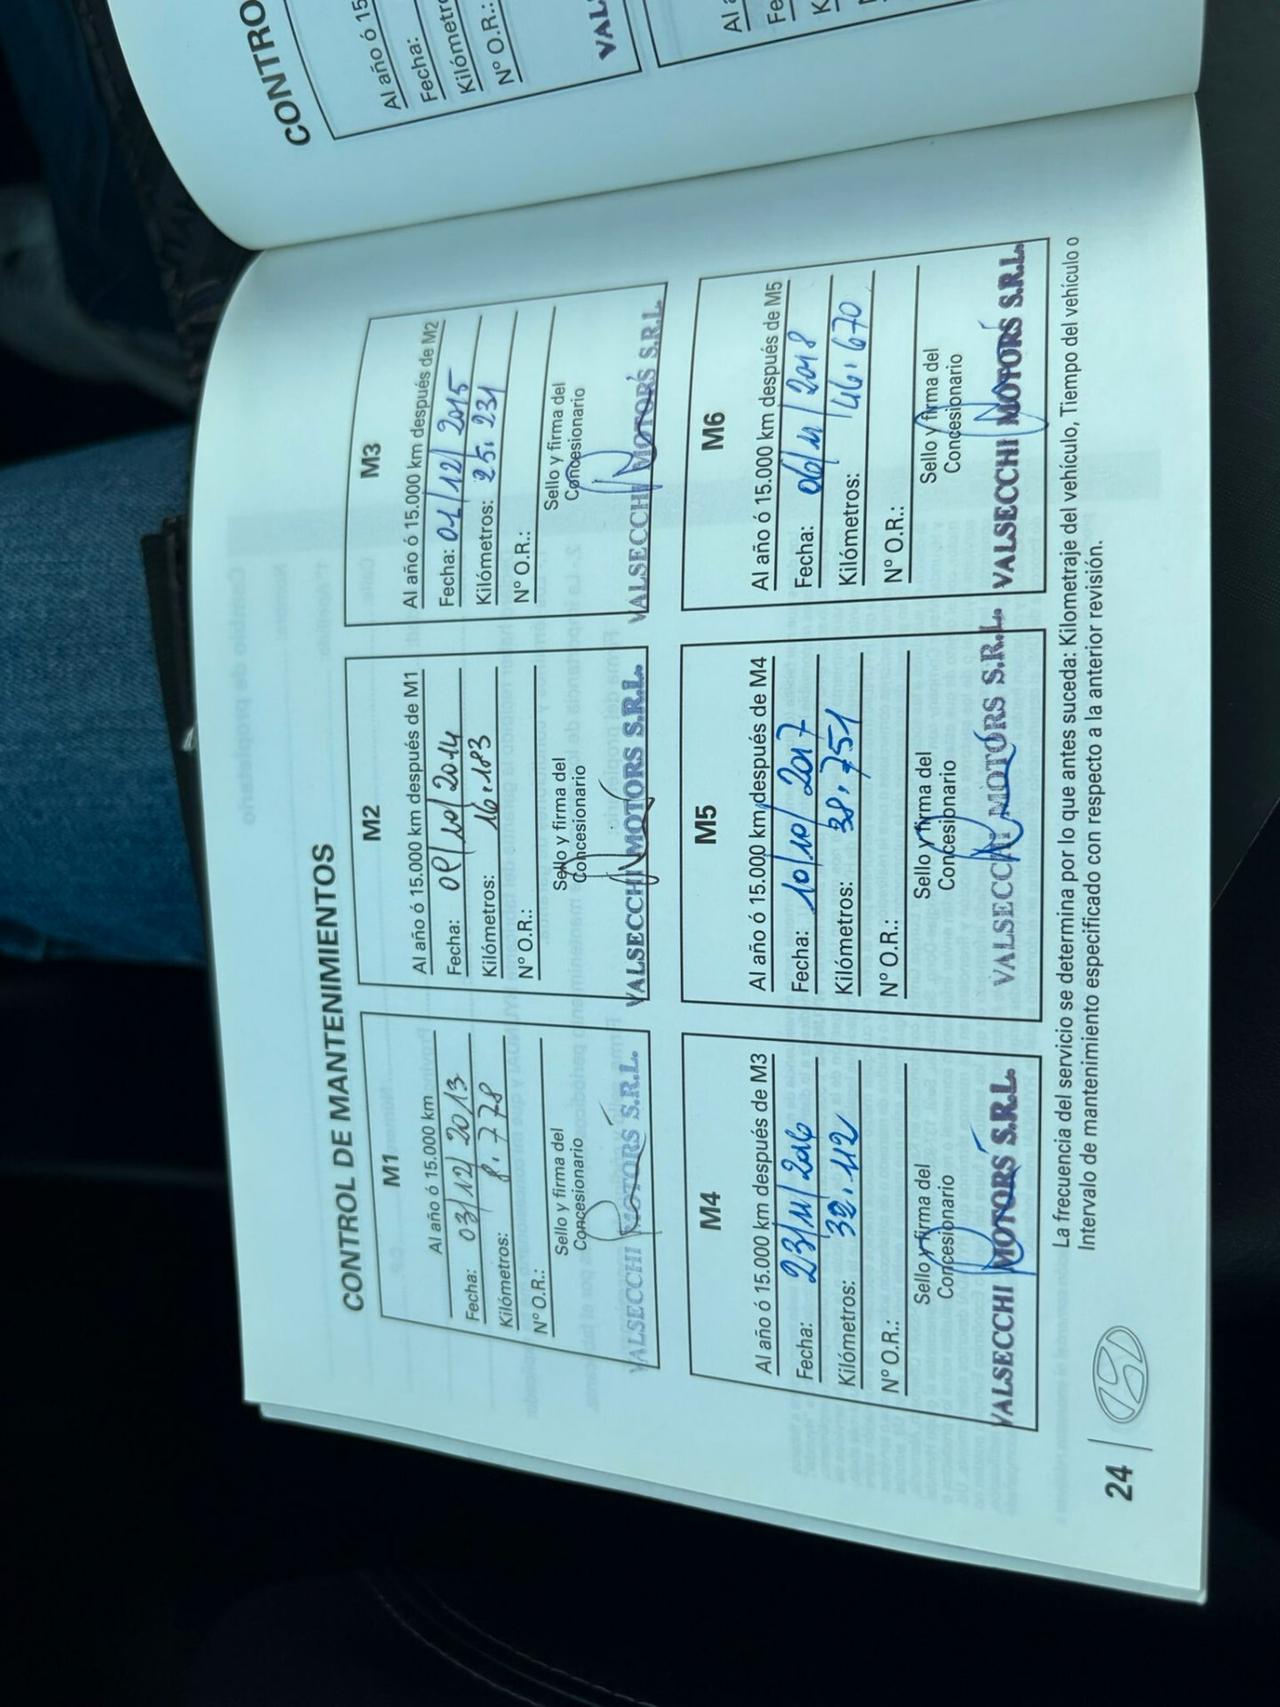 CONTROL DE MANTENIMIENTOS
M1
Al año ó 15.000 km
Fecha: 03/12/2013
Kilómetros: 8.778
Nº O.R.:
Sello y firma del
Concesionario
VALSECCHI MOTORS S.R.L.
M2
Al año ó 15.000 km después de M1
Fecha: 09/10/2014
Kilómetros: 16.183
Nº O.R.:
Sello y firma del
Concesionario
VALSECCHI MOTORS S.R.L.
M3
Al año ó 15.000 km después de M2
Fecha: 01/12/2015
Kilómetros: 25.231
Nº O.R.:
Sello y firma del
Concesionario
VALSECCHI MOTORS S.R.L.
M4
Al año ó 15.000 km después de M3
Fecha: 23/11/2016
Kilómetros: 32.112
Nº O.R.:
Sello y firma del
Concesionario
VALSECCHI MOTORS S.R.L.
M5
Al año ó 15.000 km después de M4
Fecha: 10/10/2017
Kilómetros: 38.751
Nº O.R.:
Sello y firma del
Concesionario
VALSECCHI MOTORS S.R.L.
M6
Al año ó 15.000 km después de M5
Fecha: 06/11/2018
Kilómetros: 46.670
Nº O.R.:
Sello y firma del
Concesionario
VALSECCHI MOTORS S.R.L.
La frecuencia del servicio se determina por lo que antes suceda: Kilometraje del vehículo, Tiempo del vehículo o
Intervalo de mantenimiento especificado con respecto a la anterior revisión.
24
CONTRO
Al año ó 15
Fecha:
Kilómetr
Nº O.R.:
VALS
Al a
Fe
K